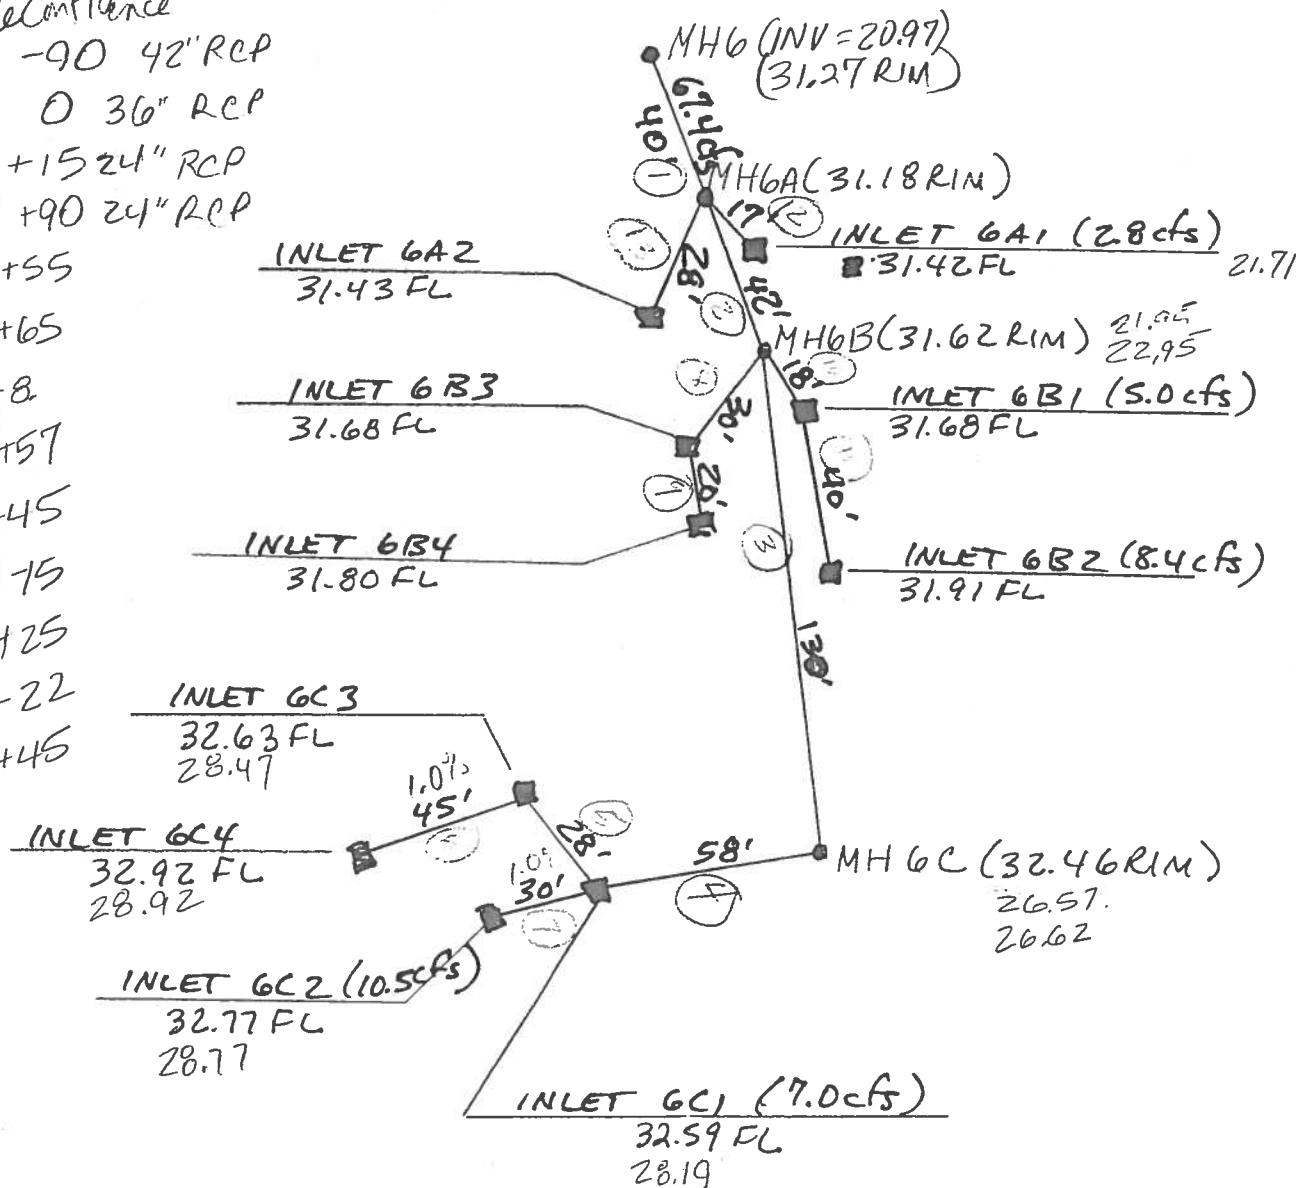 -90 42" RCP
0 36" RCP
+15 24" RCP
+90 24" RCP
+55
+65
-8
+57
-45
-75
+25
-22
+45
MH6 (INV = 20.97)
(31.27 RIM)
67.4 cfs
40'
1
MH6A (31.18 RIM)
17'
12
INLET 6A1 (2.8 cfs)
31.42 FL
21.71
INLET 6A2
31.43 FL
13
28'
42'
2
MH6B (31.62 RIM)
22.95
18'
INLET 6B1 (5.0 cfs)
31.68 FL
INLET 6B3
31.68 FL
30'
40'
20'
INLET 6B4
31.80 FL
3
INLET 6B2 (8.4 cfs)
31.91 FL
130'
INLET 6C3
32.63 FL
28.47
1.0%
45'
28'
INLET 6C4
32.92 FL
28.92
1.0%
30'
58'
4
MH 6C (32.46 RIM)
26.57
26.62
INLET 6C2 (10.5 cfs)
32.77 FL
28.77
INLET 6C1 (7.0 cfs)
32.59 FL
28.19